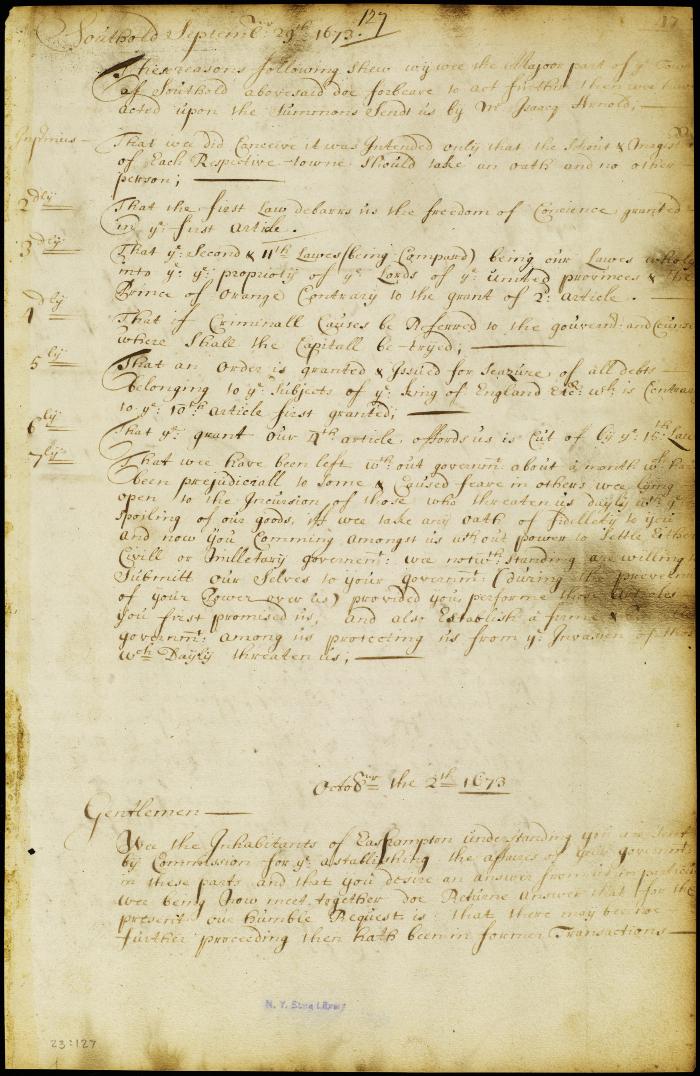 127
17
Southold Septemb:er 29th 1673.
These reasons following shew wy wee the Major part of ye Towne
of Southold abovesaid doe forbeare to act further then wee have
acted upon the Summons Sends us by Mr Isaacq Arnold; —
Inprimis — That wee did Conceive it was Intended only that the Schout & Magist
of Each Respective towne Should take an oath and no other
person; —
2dly That the first Law debarrs us the freedom of Concience granted
in ye first Article.
3dly That ye Second & 11th Lawes (being Compard) being our Lawes wholy
into ye propriety of ye Lords of ye united provinces & the
Prince of Orange Contrary to the grant of 2d: article. —
4dly That if Criminall Causes be Referred to the gouvernr and Counse
where Shall the Capitall be tryed; —
5ly That an Order is granted & Issued for Seazure of all debts
belonging to ye Subjects of ye King of England Etc: wh: is Contrar
to ye 10th article first granted; —
6ly That ye grant our 4th article affords us is Cut of by ye 15th Law
7ly That wee have been left wth out governmt: about a month wch ha
been prejudiciall to Some & Caused feare in others wee lying
open to the Incursion of those who threaten us dayly wth ye
spoiling of our goods, if wee take any oath of fidillety to you
and now you Comming amongst us wth out power to Settle Either
Civill or Milletary government: wee notwth standing are willing t
Submitt our Selves to your governmt (during the prevern
of your Power over us) provided you performe those Articles
you first promised us, and also Establish a firme &
governmt: among us protecting us from ye Invasion of those
wch Dayly threaten us; —
Octobr the 2th 1673
Gentlemen —
Wee the Inhabitants of Easthampton understanding you are Sent
by Commission for ye astablishing the affaires of your governmt:
in these parts and that you desire an answer from us in particul
wee being Now meet together doe Returne answer that for the
present our humble Request is: that there may bee no
further proceeding then hath been in former Transactions —
N. Y. State Library
23:127